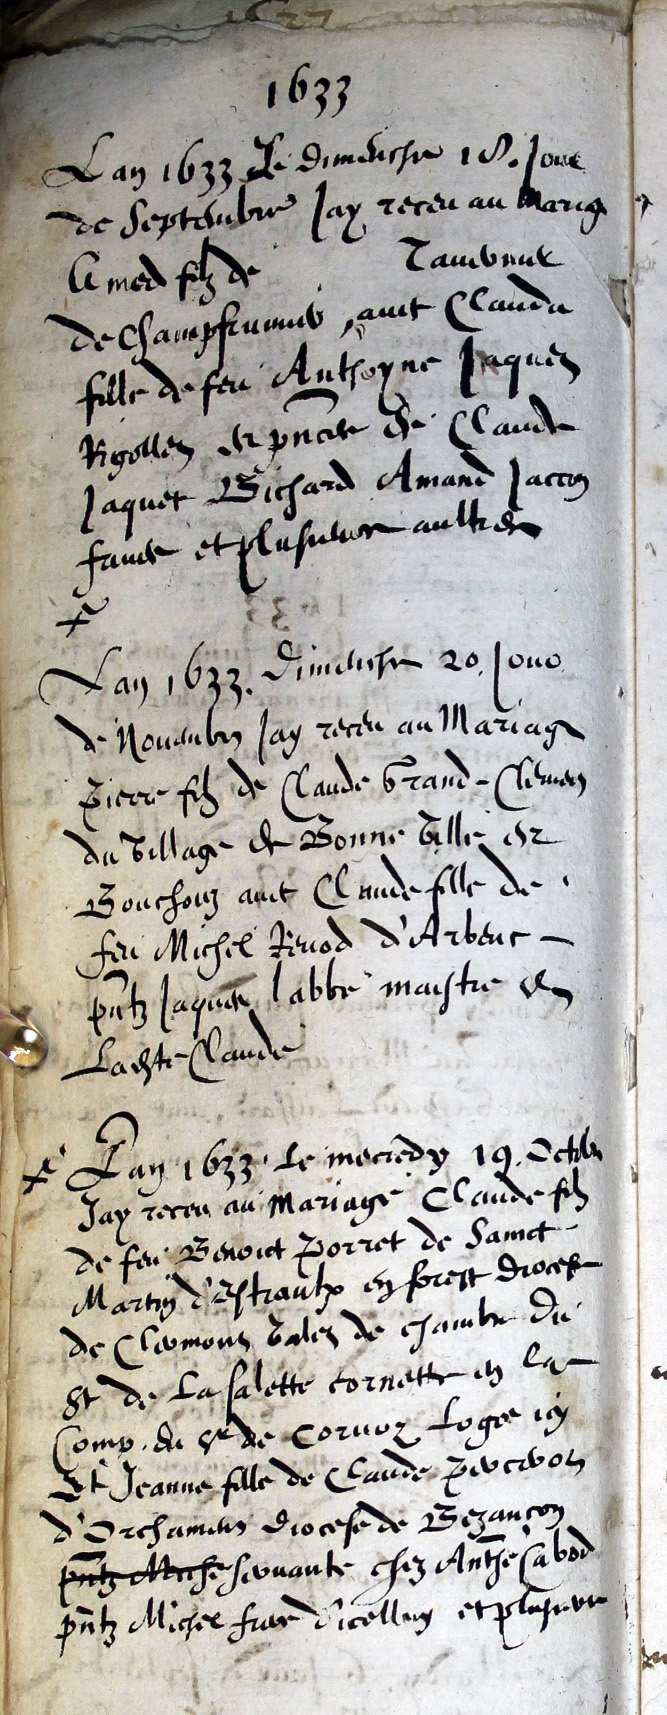 1633
Lan 1633 Le dimenche 18. Jour
de Septembre Jay receu au Mariag
Amed filz de
de Champfromier avec Clauda
fille de feu Anthoyne Jaquen
en pnce de Claude
Jaquet Bichard Amand Jaccon
et plusieurs aultres
Lan 1633. Dimenche 20. Jour
de Novembre Jay receu au Mariage
Pierre filz de Claude Grand-Clemen
du Village de Bonne Ville en
Bouchoux avec Claude fille de
feu Michel Renod d'Arbent
pntz Jaques labbe maistre de
Ladte Claude
Lan 1633. Le mecredy 19. Octobr
Jay receu au Mariage Claude filz
de feu Benoict Porret de Sainct
Martin d'Estraulx en forest diocese
de Clermont Valet de chambre du
Sr de La salette cornette en la
Comp. du Sr de Corvoz Logee icy
Et Jeanne fille de Claude
d'Orchamens diocese de Bezançon
servante chez Anthe Cabod
pntz Michel frere d'icelluy et plusieurs